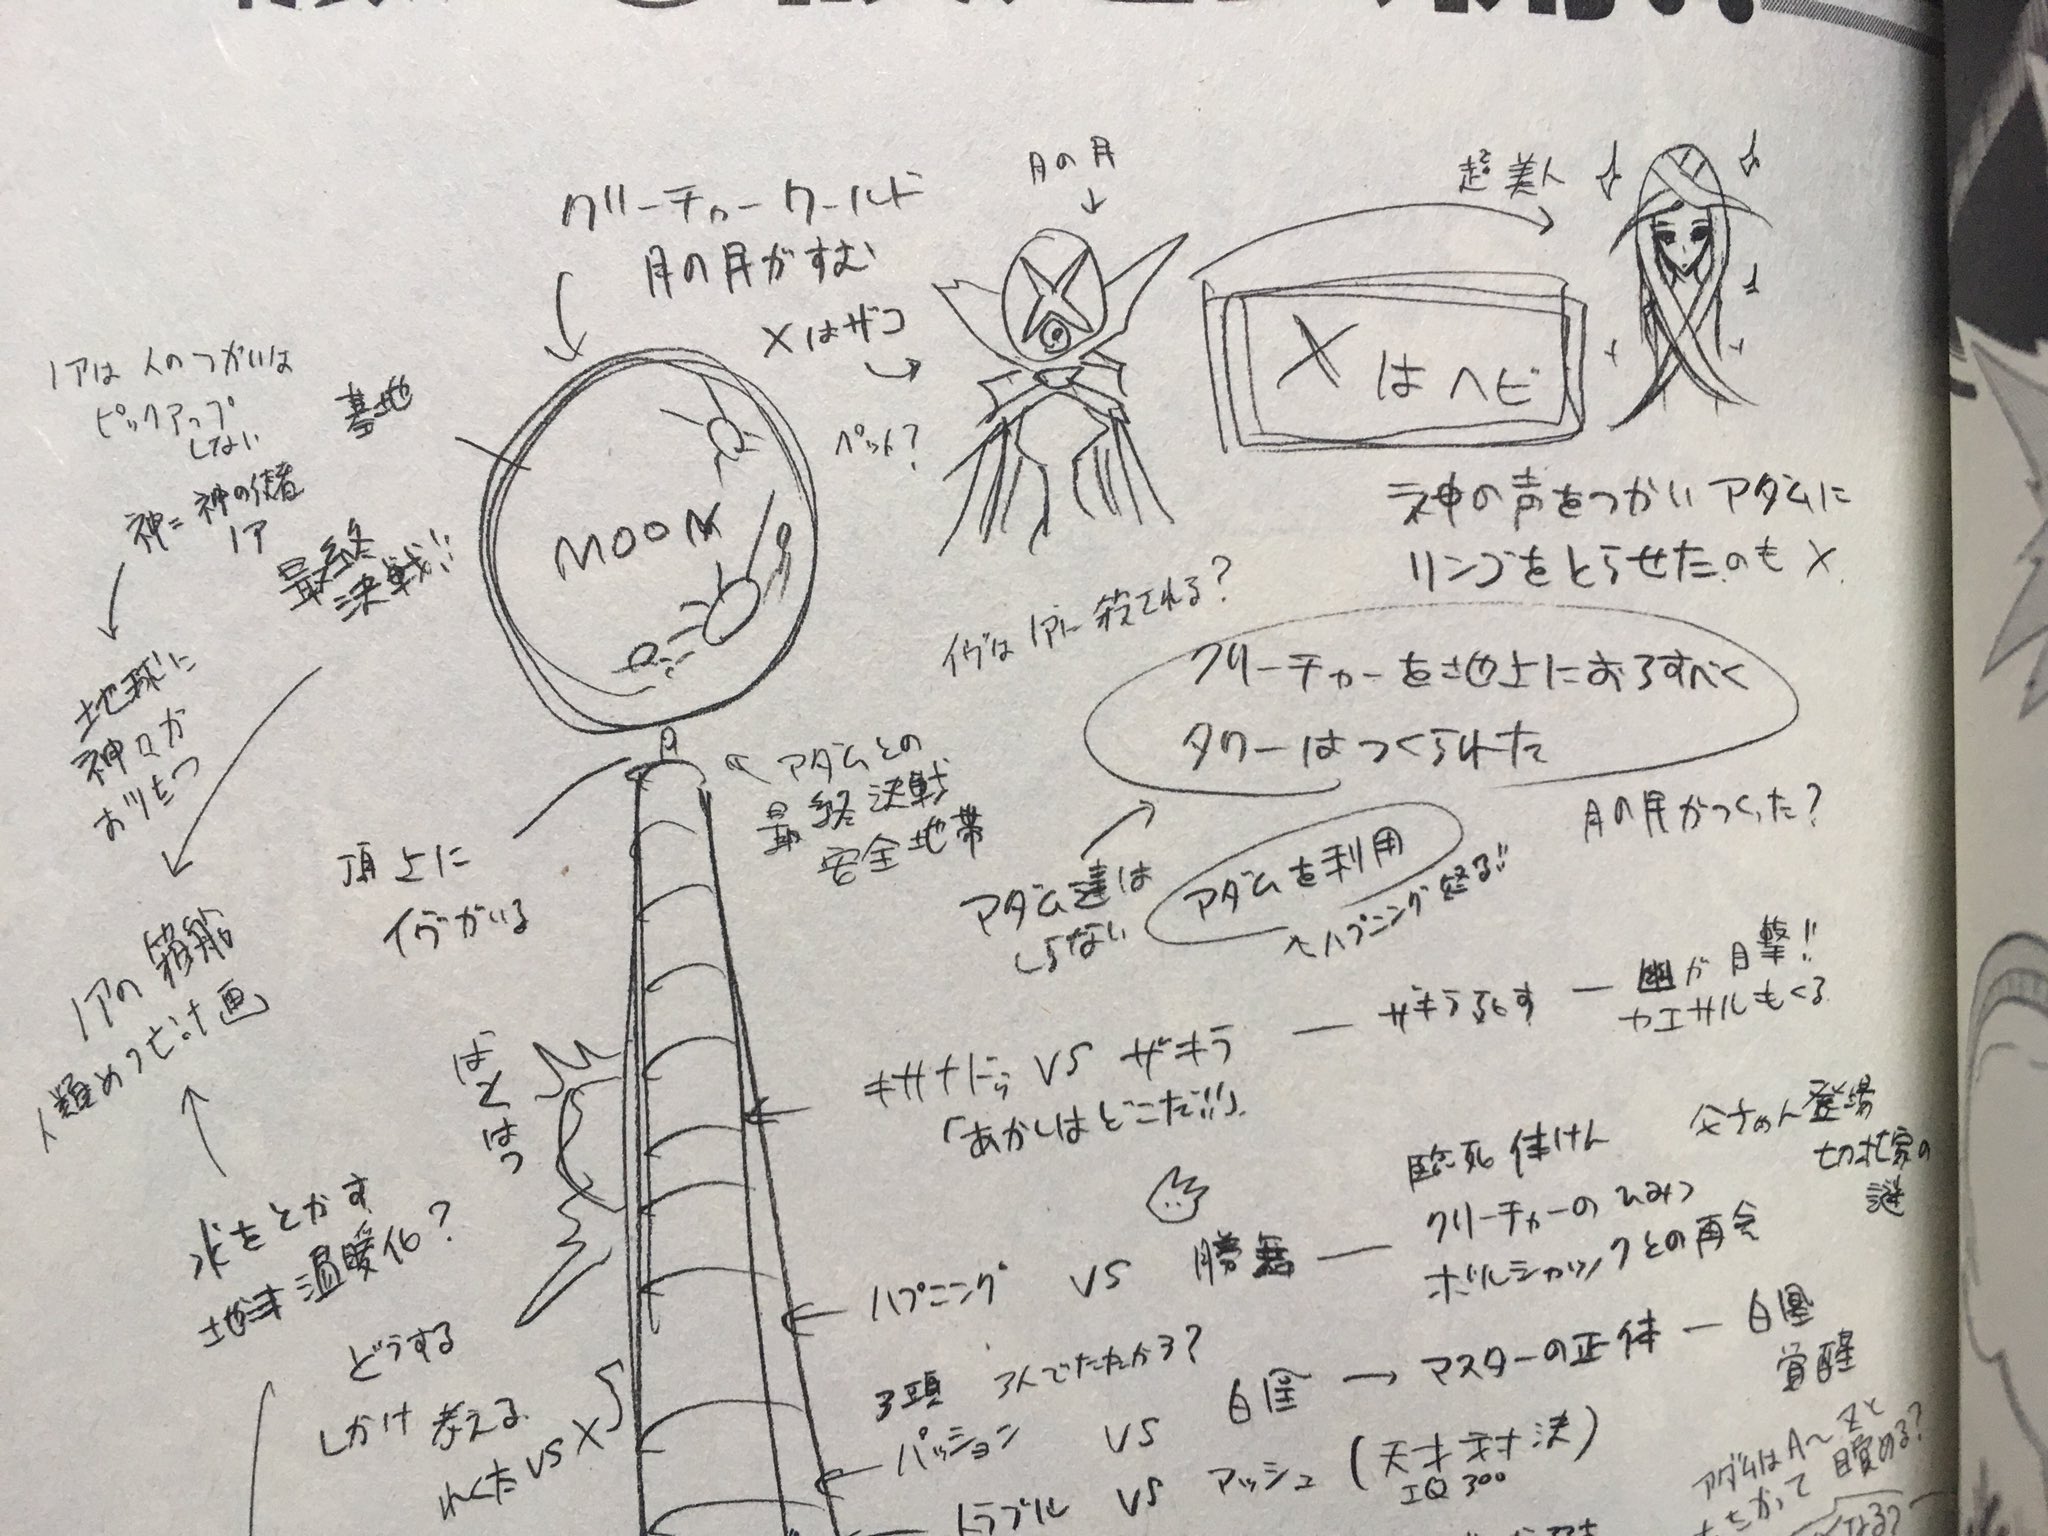 クリーチャーワールド
月の月がすむ
月の月
超美人
Xはザコ
ペット?
Xはヘビ
神の声をつかいアダムに
リンゴをとらせたのもX.
ノアは人のつかいは
ピックアップ
しない
神=神の使者
ノア
基地
最終
決戦!!
MOON
地球に
神々が
おりたつ
イヴはノアに殺される?
クリーチャーを地上におろすべく
タワーはつくられた
月の月がつくった?
アダム達は
しらない
アダムを利用
ハプニング終る!!
アダムとの
最終決戦
安全地帯
頂上に
イヴがいる
ノアの箱船
人類めつぼう計画
氷をとかす
地球温暖化?
どうする
しかけ考える
VS X
キサナドゥ VS ザキラ — ザキラ死す — が目撃!!
カエサルもくる
「あかしはどこだ!!」
ハプニング VS 勝舞 —
臨死体けん
クリーチャーのひみつ
ボルシャックとの再会
父さん登場
切札家の
謎
3頭 3人でたたかう?
パッション VS 白凰 → マスターの正体 — 白凰
覚醒
トラブル VS アッシュ (天才対決)
IQ300
アダムはA〜Zと
たたかって 目覚める?